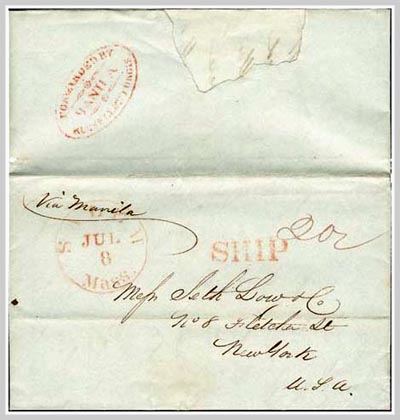 FORWARDED BY
MANILA
Via Manila
JUL
8
Mass.
SHIP
Mess Seth Low & Co
No 8 Fletcher St
New York
U.S.A.